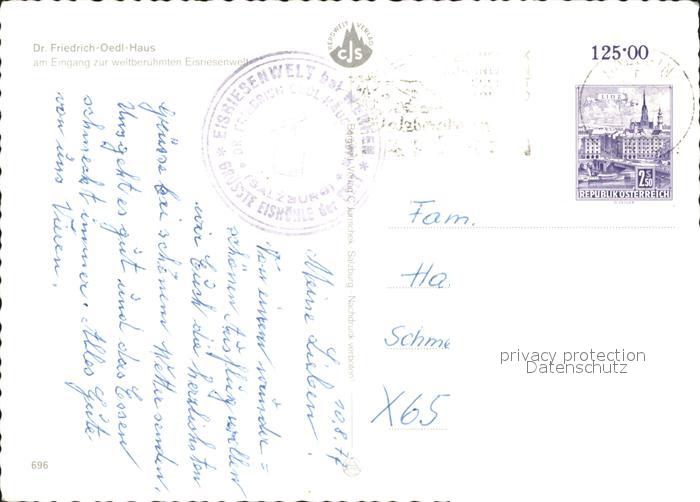 Dr. Friedrich-Oedl-Haus
am Eingang zur weltberühmten Eisriesenwelt
BERGWELT VERLAG
CJS
EISRIESENWELT bei WERFEN
DR. FRIEDRICH OEDL HAUS
(SALZBURG)
GRÖSSTE EISHÖHLE der
125·00
LINZ
2.50
REPUBLIK ÖSTERREICH
10.8.77
Meine Lieben!
Von einem wunder=
schönen Ausflug wollen
wir Euch die herzlichsten
Grüsse bei schönem Wetter senden.
Uns geht es gut und das Essen
schmeckt immer. Alles Gute
von uns Vieren.
Salzburg Nachdruck verboten
Fam.
Ha
Schme
X65
privacy protection
Datenschutz
696